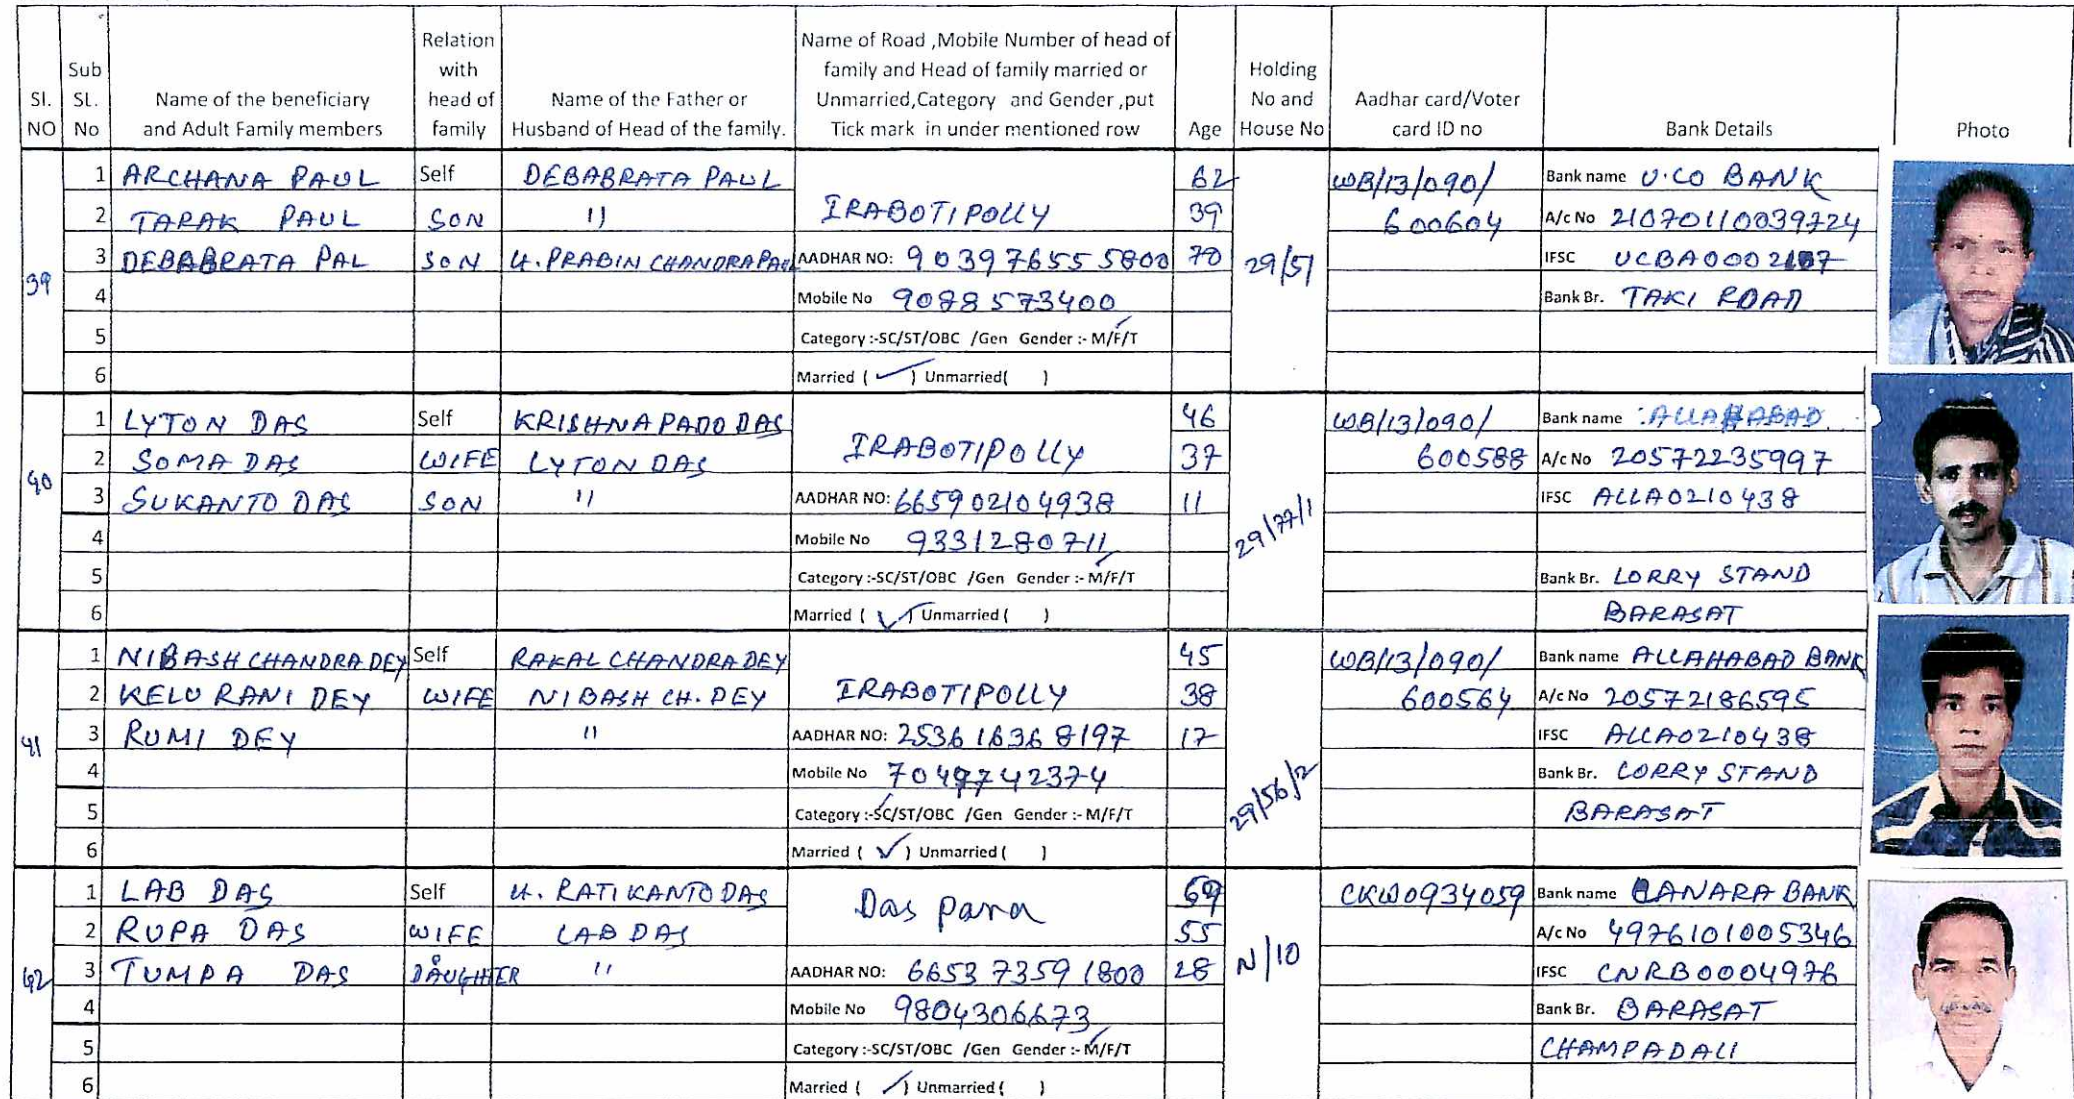 Sl. NO | Sub SL. No | Name of the beneficiary and Adult Family members | Relation with head of family | Name of the Father or Husband of Head of the family. | Name of Road ,Mobile Number of head of family and Head of family married or Unmarried,Category and Gender ,put Tick mark in under mentioned row | Age | Holding No and House No | Aadhar card/Voter card ID no | Bank Details | Photo
39
1 ARCHANA PAUL Self DEBABRATA PAUL 62 WB/13/090/ Bank name U.CO BANK
2 TARAK PAUL SON 11 IRABOTIPOLLY 39 600604 A/c No 21070110039724
3 DEBABRATA PAL SON PRABIN CHANDRA PAUL AADHAR NO: 903976555800 70 29/51 IFSC
4 Mobile No 9088573400 Bank Br. TAKI ROAD
5 Category :-SC/ST/OBC /Gen Gender :- M/F/T
6 Married ( ✓ ) Unmarried( )
40
1 LYTON DAS Self KRISHNAPADO DAS 46 WB/13/090/ Bank name ALLAHABAD
2 SOMA DAS WIFE LYTON DAS IRABOTIPOLLY 37 600588 A/c No 20572235997
3 SUKANTO DAS SON 11 AADHAR NO: 665902104938 11 IFSC ALLA0210438
4 Mobile No 9331280711
5 Category :-SC/ST/OBC /Gen Gender :- M/F/T Bank Br. LORRY STAND
6 Married ( ✓ ) Unmarried ( ) BARASAT
41
1 NIBASH CHANDRA DEY Self RAKAL CHANDRA DEY 45 WB/13/090/ Bank name ALLAHABAD BANK
2 KELU RANI DEY WIFE NIBASH CH. DEY IRABOTIPOLLY 38 600564 A/c No 20572186595
3 RUMI DEY 11 AADHAR NO: 253616368197 17 IFSC ALLA0210438
4 Mobile No 29/56/2 Bank Br. LORRY STAND
5 Category :-SC/ST/OBC /Gen Gender :- M/F/T BARASAT
6 Married ( ✓ ) Unmarried ( )
42
1 LAB DAS Self RATIKANTO DAS CKW0934059 Bank name CANARA BANK
2 RUPA DAS WIFE LAB DAS Das para 55 A/c No 4976101005346
3 TUMPA DAS DAUGHTER 11 AADHAR NO: 665373591800 28 N/10 IFSC CNRB0004976
4 Mobile No 9804306673 Bank Br. BARASAT
5 Category :-SC/ST/OBC /Gen Gender :- M/F/T CHAMPADALI
6 Married ( ✓ ) Unmarried ( )